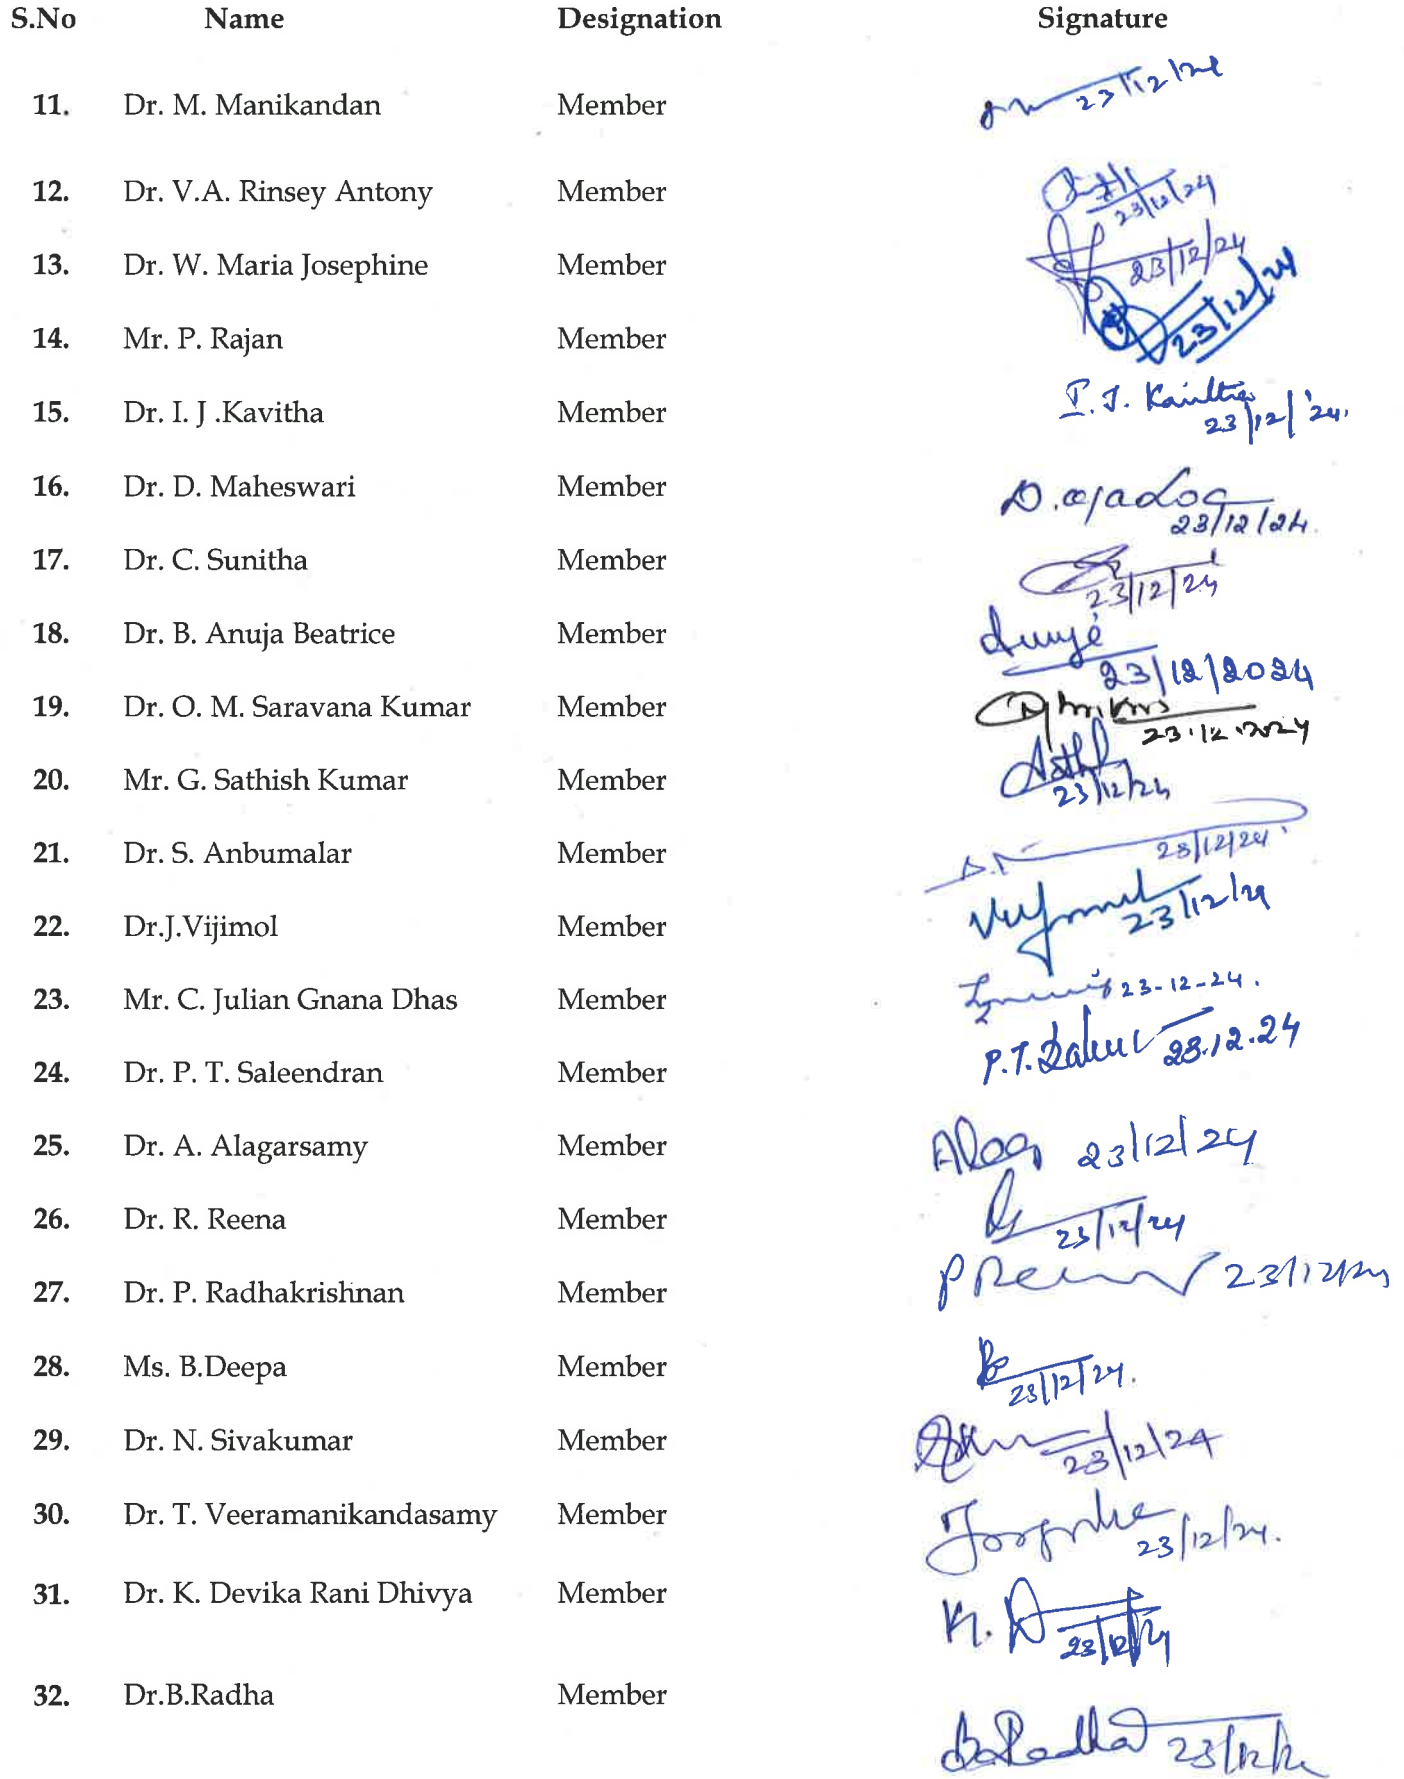 S.No Name Designation Signature
11. Dr. M. Manikandan Member 23/12/24
12. Dr. V.A. Rinsey Antony Member 23/12/24
13. Dr. W. Maria Josephine Member 23/12/24
14. Mr. P. Rajan Member 23/12/24
15. Dr. I. J .Kavitha Member I. J. Kavitha 23/12/'24.
16. Dr. D. Maheswari Member D. 23/12/24.
17. Dr. C. Sunitha Member 23/12/24
18. Dr. B. Anuja Beatrice Member 23/12/2024
19. Dr. O. M. Saravana Kumar Member 23.12.2024
20. Mr. G. Sathish Kumar Member 23/12/24
21. Dr. S. Anbumalar Member 23/12/24
22. Dr.J.Vijimol Member 23/12/24
23. Mr. C. Julian Gnana Dhas Member 23-12-24.
24. Dr. P. T. Saleendran Member P.T. 23.12.24
25. Dr. A. Alagarsamy Member 23/12/24
26. Dr. R. Reena Member 23/12/24
27. Dr. P. Radhakrishnan Member 23/12/24
28. Ms. B.Deepa Member 23/12/24.
29. Dr. N. Sivakumar Member 23/12/24
30. Dr. T. Veeramanikandasamy Member 23/12/24.
31. Dr. K. Devika Rani Dhivya Member K. 23/12/24
32. Dr.B.Radha Member B. Radha 23/12/24